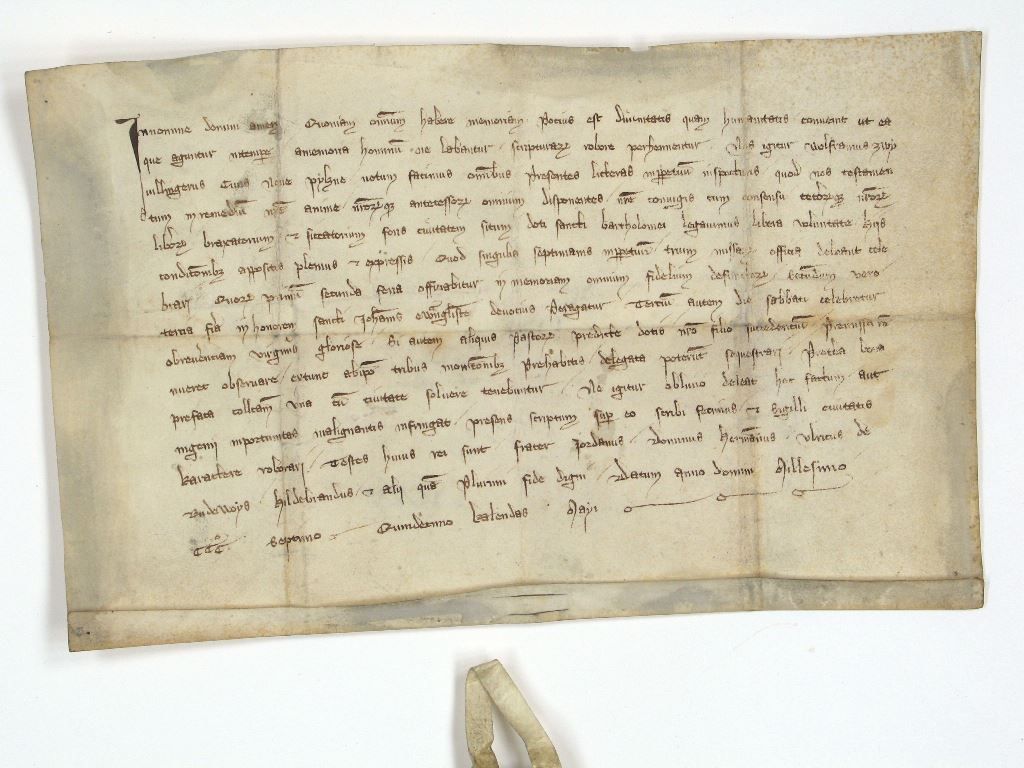 In nomine domini amen Quoniam omnium habere memoriam Potius est divinitatis quam humanitatis convenit ut ea
que aguntur in tempore a memoria hominum ne labantur scripturarum robore perhennentur Nos igitur Wolframus
Cives Nove pylzne notum facimus omnibus presentes litteras inperpetuum inspecturis quod nos testamen
tum in remedium anime omnium disponentes nostre coniugis cum consensu
libere braxatorium et siccatorium fons civitatem situm doti sancti bartholomei legavimus libera voluntate hiis
condicionibus appositis plenius et expressis Quod singulis septimanis inperpetuum trium missarum officia debeant cele
brari Quorum primum secunda feria in memoriam omnium fidelium defunctorum secundum vero
tercia feria in honorem sancti Johannis ewangeliste devotius peragatur Tercium autem die sabbati celebretur
ob reverenciam virginis gloriose Si autem aliquis pastorum predicte dotis filio
observare extunc ab ipso tribus monicionibus prehabitis delegata poterunt sequestrari
prefata collectam una cum civitate solvere tenebuntur Ne igitur oblivio deleat hoc factum aut
ingenii inportunitas malignantis infringat presens scriptum super eo scribi fecimus et sigilli civitatis
karactere roborari Testes huius rei sunt frater Jordanus Dominus Hermannus Ulricus de
Hildebrandus et alii quam plurimi fide digni Datum anno domini Millesimo
CCCo septimo Quindecimo kalendas Mayi